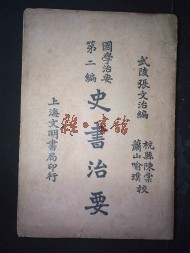 武陵張文治編
杭縣陳棠
蕭山喻璞 校
國學治要
第二編
史書治要
上海文明書局印行